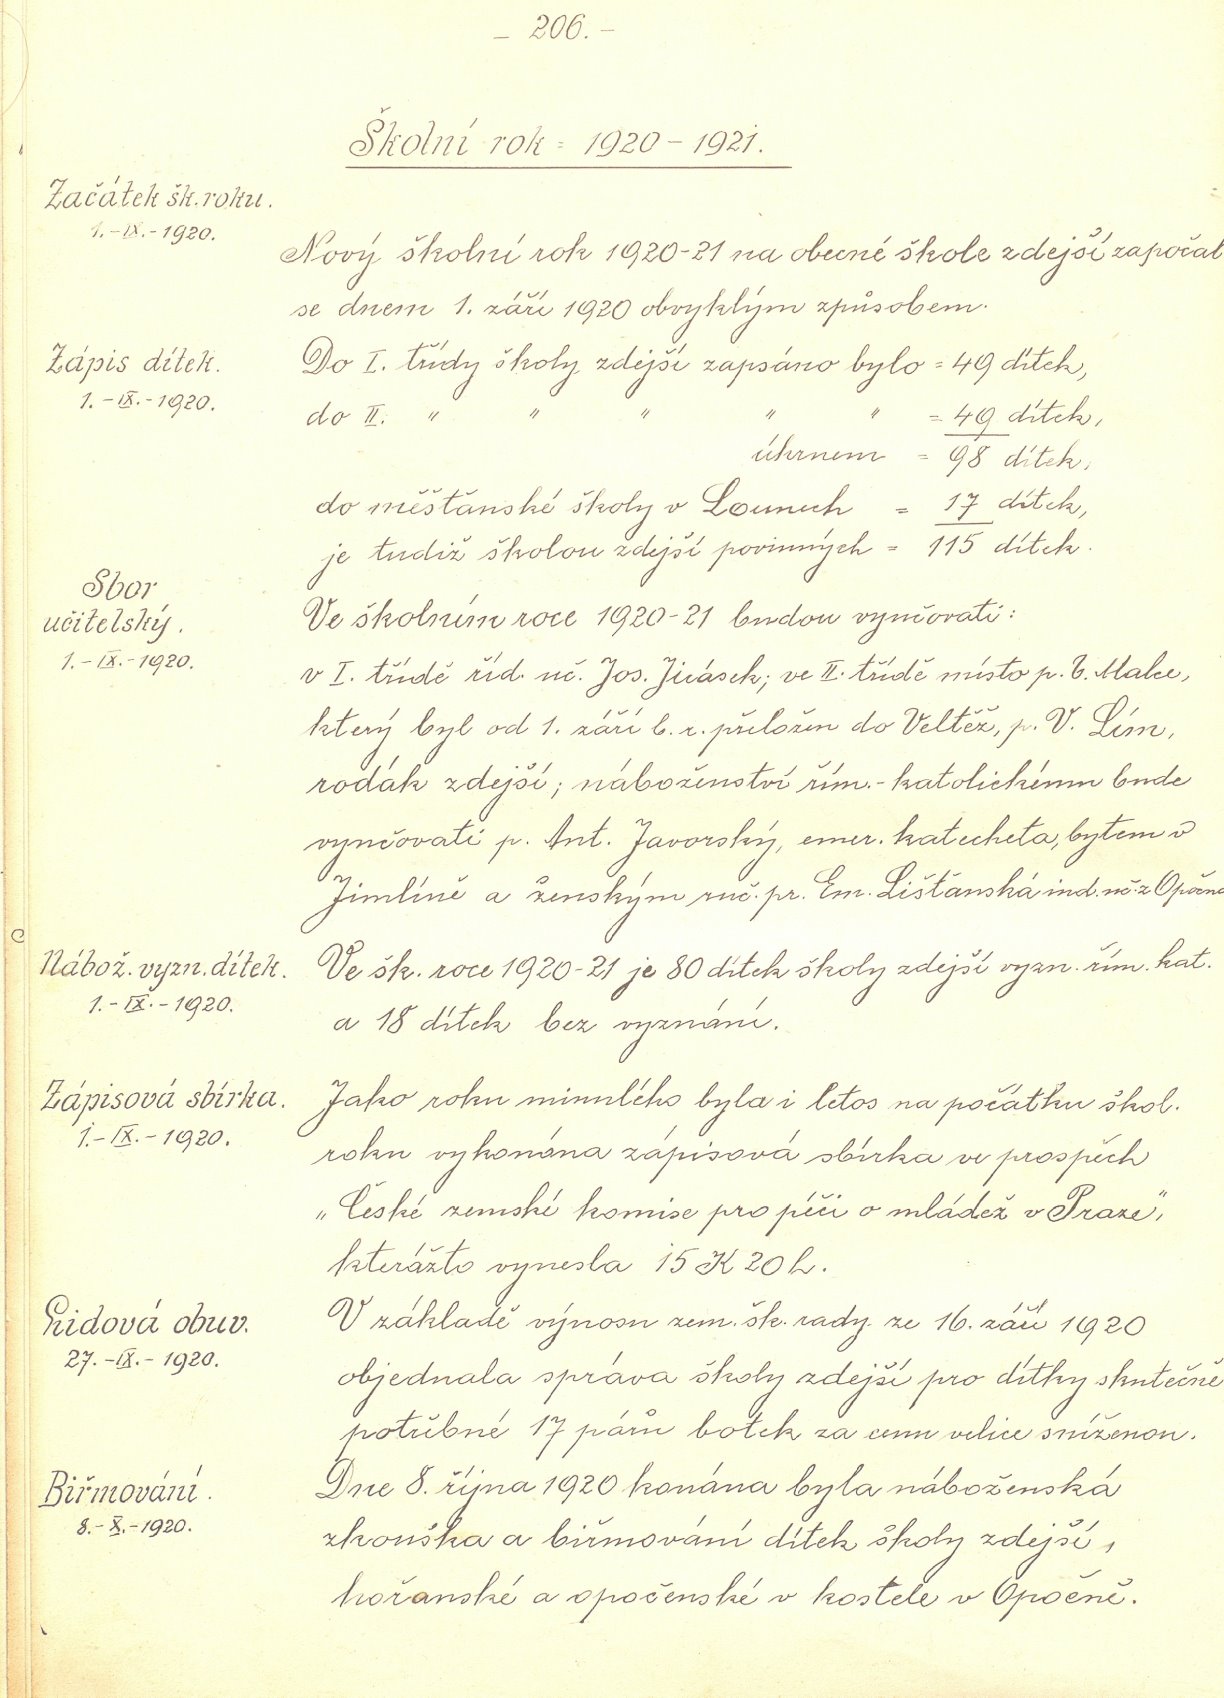 – 206. –
Školní rok = 1920 – 1921.
Začátek šk. roku.
1. – IX. – 1920.
Nový školní rok 1920-21 na obecné škole zdejší započal
se dnem 1. září 1920 obvyklým způsobem.
Zápis dítek.
1. – IX. – 1920.
Do I. třídy školy zdejší zapsáno bylo = 49 dítek,
do II. " " " " " = 49 dítek,
úhrnem = 98 dítek,
do měšťanské školy v Lounech = 17 dítek,
je tudiž školou zdejší povinných = 115 dítek.
Sbor
učitelský.
1. – IX. – 1920.
Ve školním roce 1920-21 budou vyučovati:
v I. třídě říd. uč. Jos. Jirásek; ve II. třídě místo p. Malce,
který byl od 1. září t. r. přeložen do Veltěž, p. V. Lím,
rodák zdejší; náboženství řím.-katolickému bude
vyučovati p. Ant. Javorský, emer. katecheta, bytem v
Jimlíně a ženským ruč. pr. Em. Lišťanská ind. uč. z Opočna
Nábož. vyzn. dítek.
1. – IX. – 1920.
Ve šk. roce 1920-21 je 80 dítek školy zdejší vyzn. řím. kat.
a 18 dítek bez vyznání.
Zápisová sbírka.
1. – IX. – 1920.
Jako roku minulého byla i letos na počátku škol.
roku vykonána zápisová sbírka ve prospěch
„České zemské komise pro péči o mládež v Praze",
kterážto vynesla 15 K 20 h.
Lidová obuv.
27. – IX. – 1920.
V základě výnosu zem. šk. rady ze 16. září 1920
objednala správa školy zdejší pro dítky skutečně
potřebné 17 párů botek za cenu velice sníženou.
Biřmování.
8. – X. – 1920.
Dne 8. října 1920 konána byla náboženská
zkouška a biřmování dítek školy zdejší,
hořanské a opočenské v kostele v Opočně.